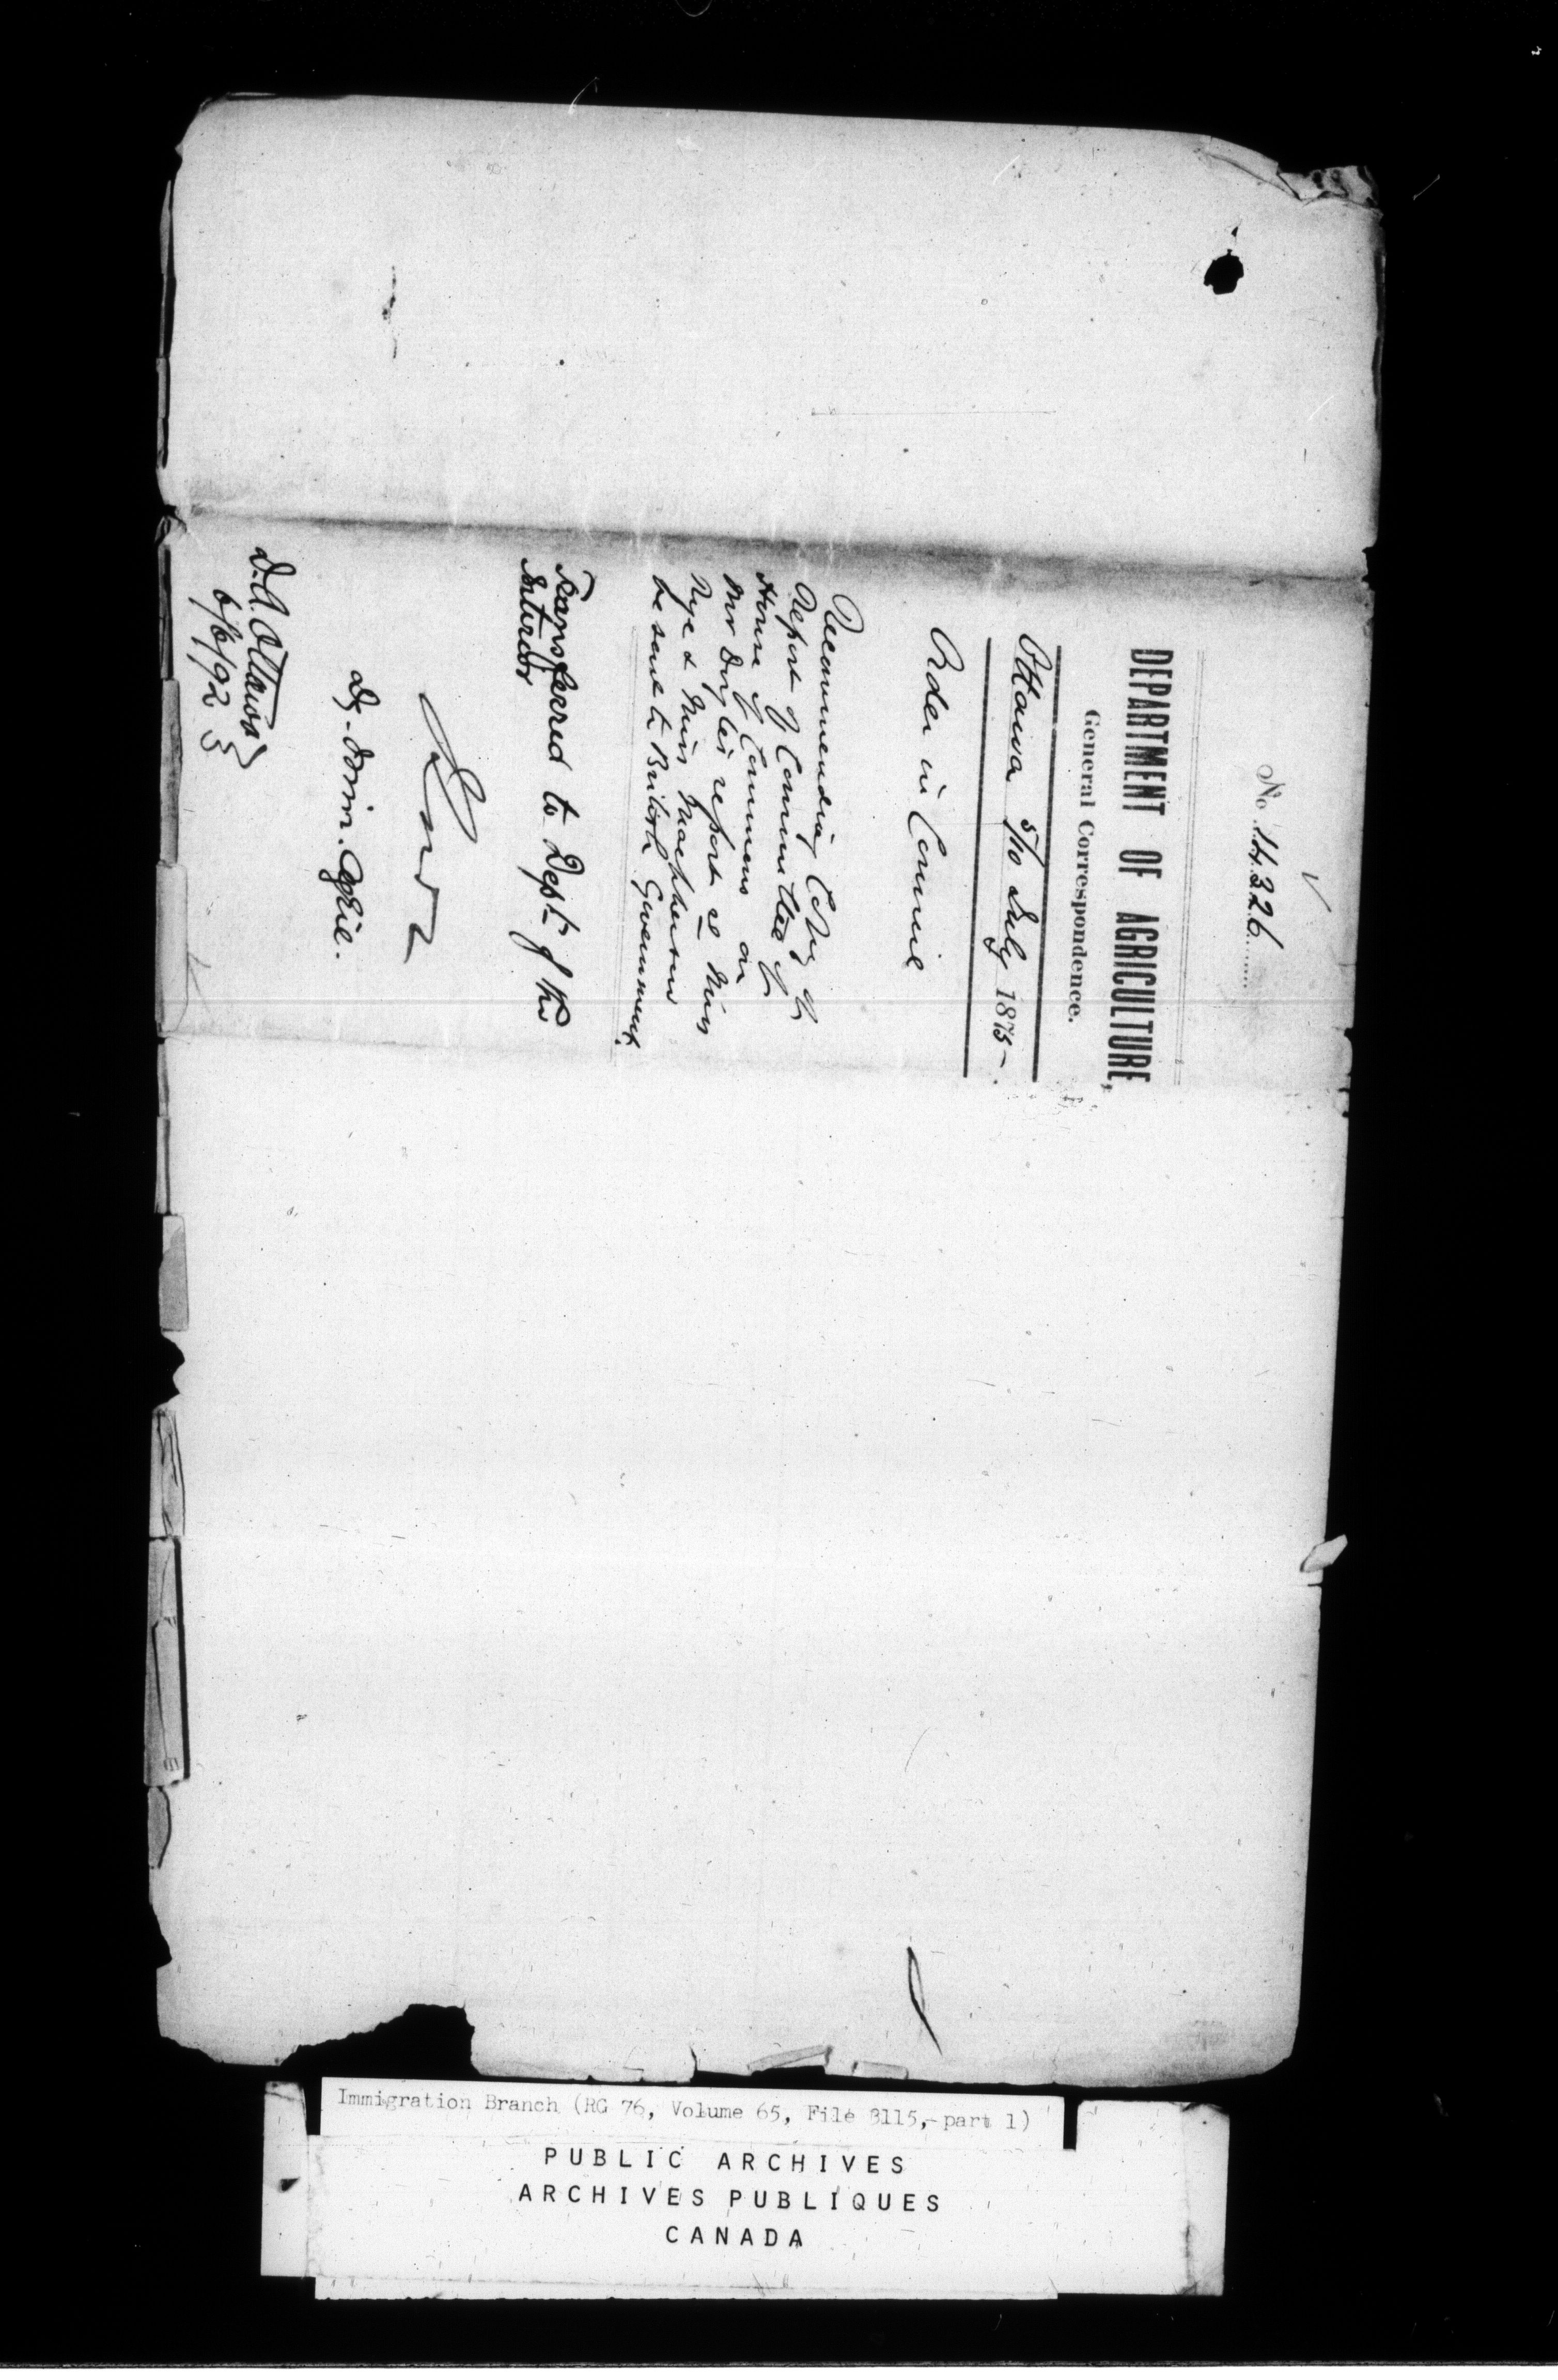 No. 14326
DEPARTMENT OF AGRICULTURE,
General Correspondence.
Ottawa 5/10 July 1875
Order in Council
Recommending Copy of
Report of Committee of
House of Commons on
Mr Doyle's report re Miss
Rye & Miss Macpherson
be sent to British Government.
Transferred to Dept. of the
Interior
D. A. Ottawa
6/6/92
Immigration Branch (RG 76, Volume 65, File 3115, part 1)
PUBLIC ARCHIVES
ARCHIVES PUBLIQUES
CANADA